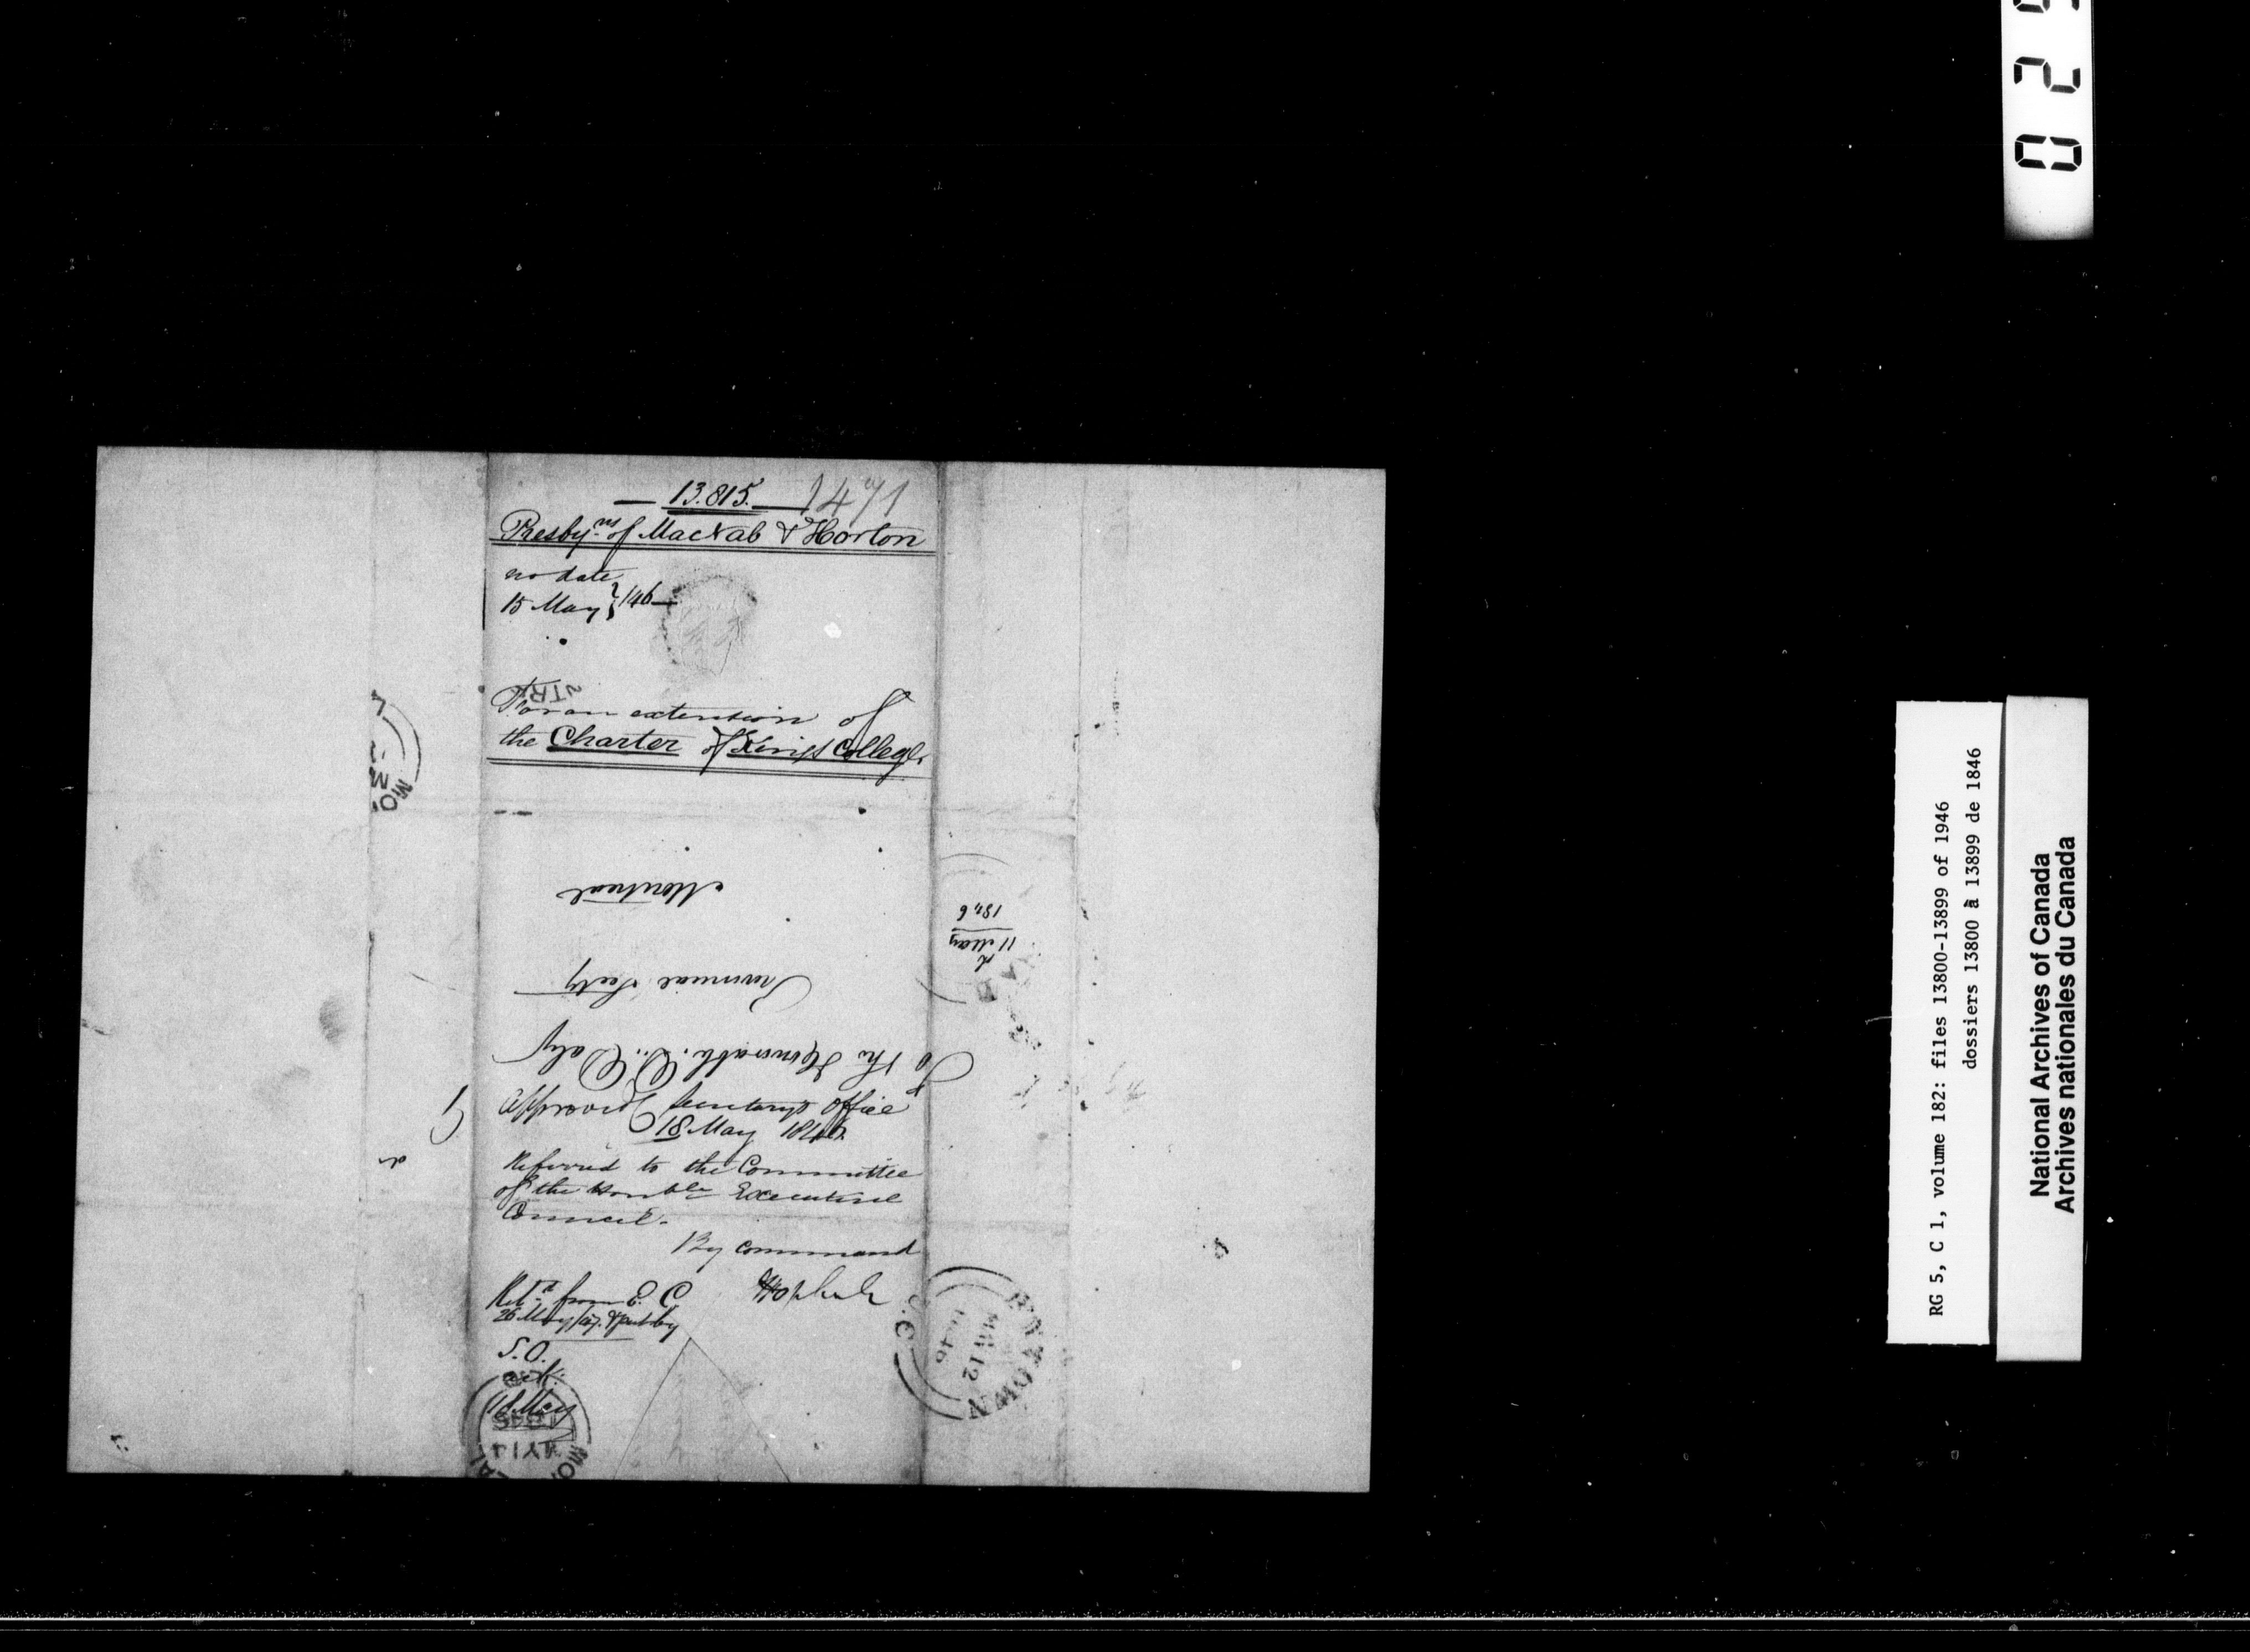 13.815. 1471
Presby.ns of MacNab & Horton
no date
15 May } /46
For an extension of
the Charter of Kings College.
Montreal
Provincial Secty
To The Honorable. D.. Daly
Secretary's Office
18 May 1846.
Referred to the Committee
of the Honble Executive
Council.
By Command
Ret.d from E. C
26 May/47.
S.O.
18 May
11 May
1846
BYTOWN
1846
RG 5, C 1, volume 182: files 13800-13899 of 1946
dossiers 13800 à 13899 de 1846
National Archives of Canada
Archives nationales du Canada